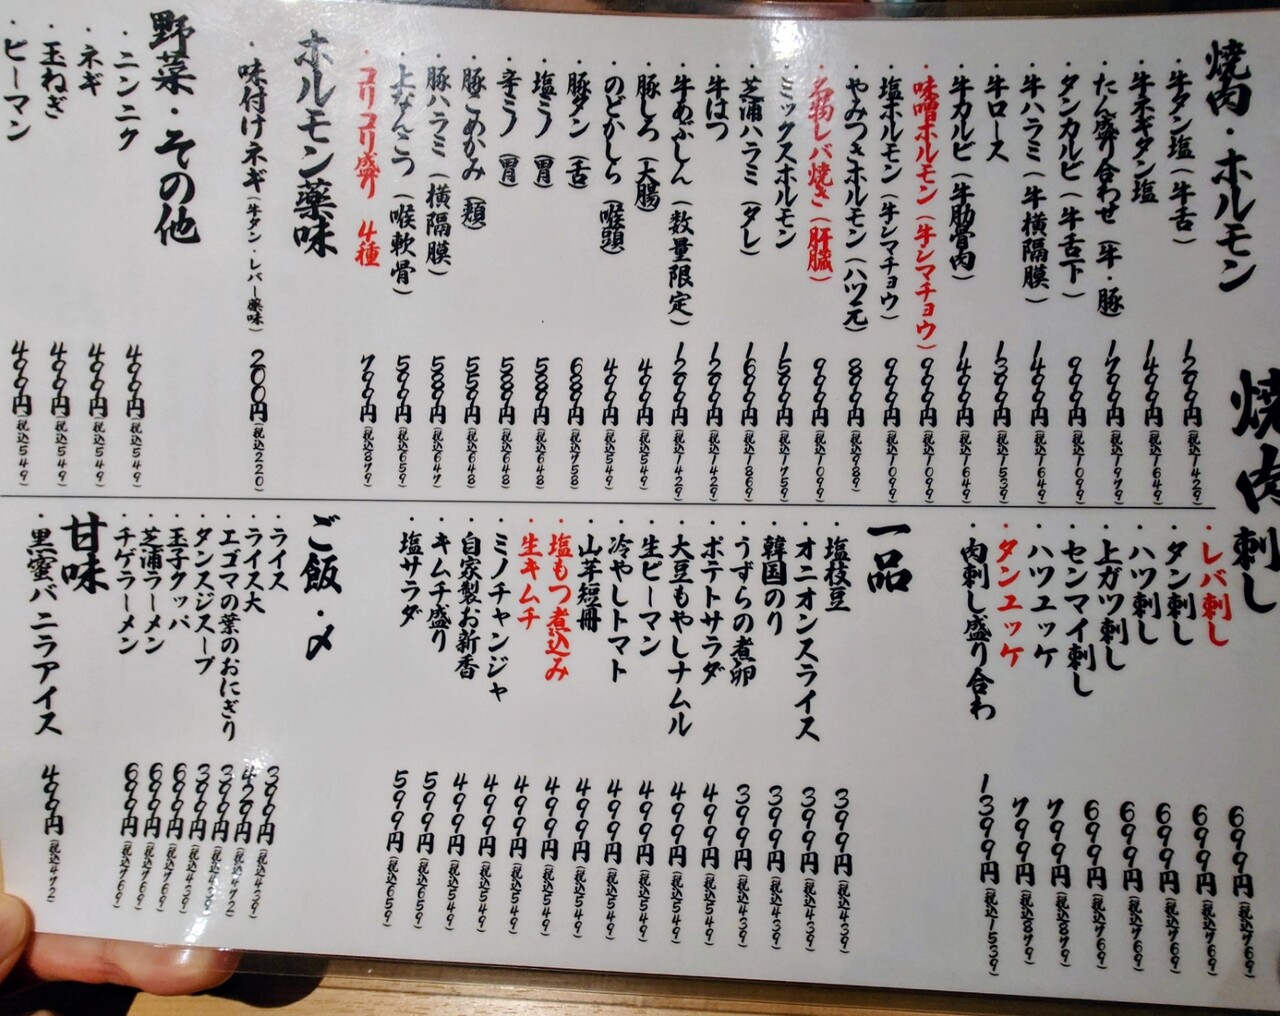 焼肉・ホルモン
・牛タン塩(牛舌) 1299円(税込1429)
・牛ネギタン塩 1499円(税込1649)
・たん盛り合わせ(牛・豚) 1799円(税込1979)
・タンカルビ(牛舌下) 999円(税込1099)
・牛ハラミ(牛横隔膜) 1499円(税込1649)
・牛ロース 1399円(税込1539)
・牛カルビ(牛肋骨肉) 1499円(税込1649)
・味噌ホルモン(牛シマチョウ) 999円(税込1099)
・塩ホルモン(牛シマチョウ) 999円(税込1099)
・やみつきホルモン(ハツ元) 899円(税込989)
・名物レバ焼き(肝臓) 999円(税込1099)
・ミックスホルモン 1599円(税込1759)
・芝浦ハラミ(タレ) 1699円(税込1869)
・牛はつ 1299円(税込1429)
・牛あぶしん(数量限定) 1299円(税込1429)
・豚しろ(大腸) 499円(税込549)
・のどかしら(喉頭) 499円(税込549)
・豚タン(舌) 689円(税込758)
・塩ミノ(胃) 589円(税込648)
・辛ミノ(胃) 589円(税込648)
・豚こめかみ(頬) 559円(税込648)
・豚ハラミ(横隔膜) 589円(税込647)
・上なんこつ(喉軟骨) 599円(税込659)
・コリコリ盛り 4種 799円(税込879)
ホルモン薬味
・味付けネギ(牛タン・レバー薬味) 200円(税込220)
野菜・その他
・ニンニク 499円(税込549)
・ネギ 499円(税込549)
・玉ねぎ 499円(税込549)
・ピーマン 499円(税込549)
焼肉刺し
・レバ刺し 699円(税込769)
・タン刺し 699円(税込769)
・ハツ刺し 699円(税込769)
・上ガツ刺し 699円(税込769)
・センマイ刺し 699円(税込769)
・ハツユッケ 799円(税込879)
・タンユッケ 799円(税込879)
・肉刺し盛り合わ 1399円(税込1539)
一品
・塩枝豆 399円(税込439)
・オニオンスライス 399円(税込439)
・韓国のり 399円(税込439)
・うずらの煮卵 399円(税込439)
・ポテトサラダ 499円(税込549)
・大豆もやしナムル 499円(税込549)
・生ピーマン 499円(税込549)
・冷やしトマト 499円(税込549)
・山芋短冊 499円(税込549)
・塩もつ煮込み 499円(税込549)
・生キムチ 499円(税込549)
・ミノチャンジャ 499円(税込549)
・自家製お新香 499円(税込549)
・キムチ盛り 599円(税込659)
・塩サラダ 599円(税込659)
ご飯・〆
・ライス 399円(税込439)
・ライス大 429円(税込472)
・エゴマの葉のおにぎり 399円(税込439)
・タンスジスープ 399円(税込439)
・玉子クッパ 699円(税込769)
・芝浦ラーメン 699円(税込769)
・チゲラーメン 699円(税込769)
甘味
・黒蜜バニラアイス 499円(税込472)